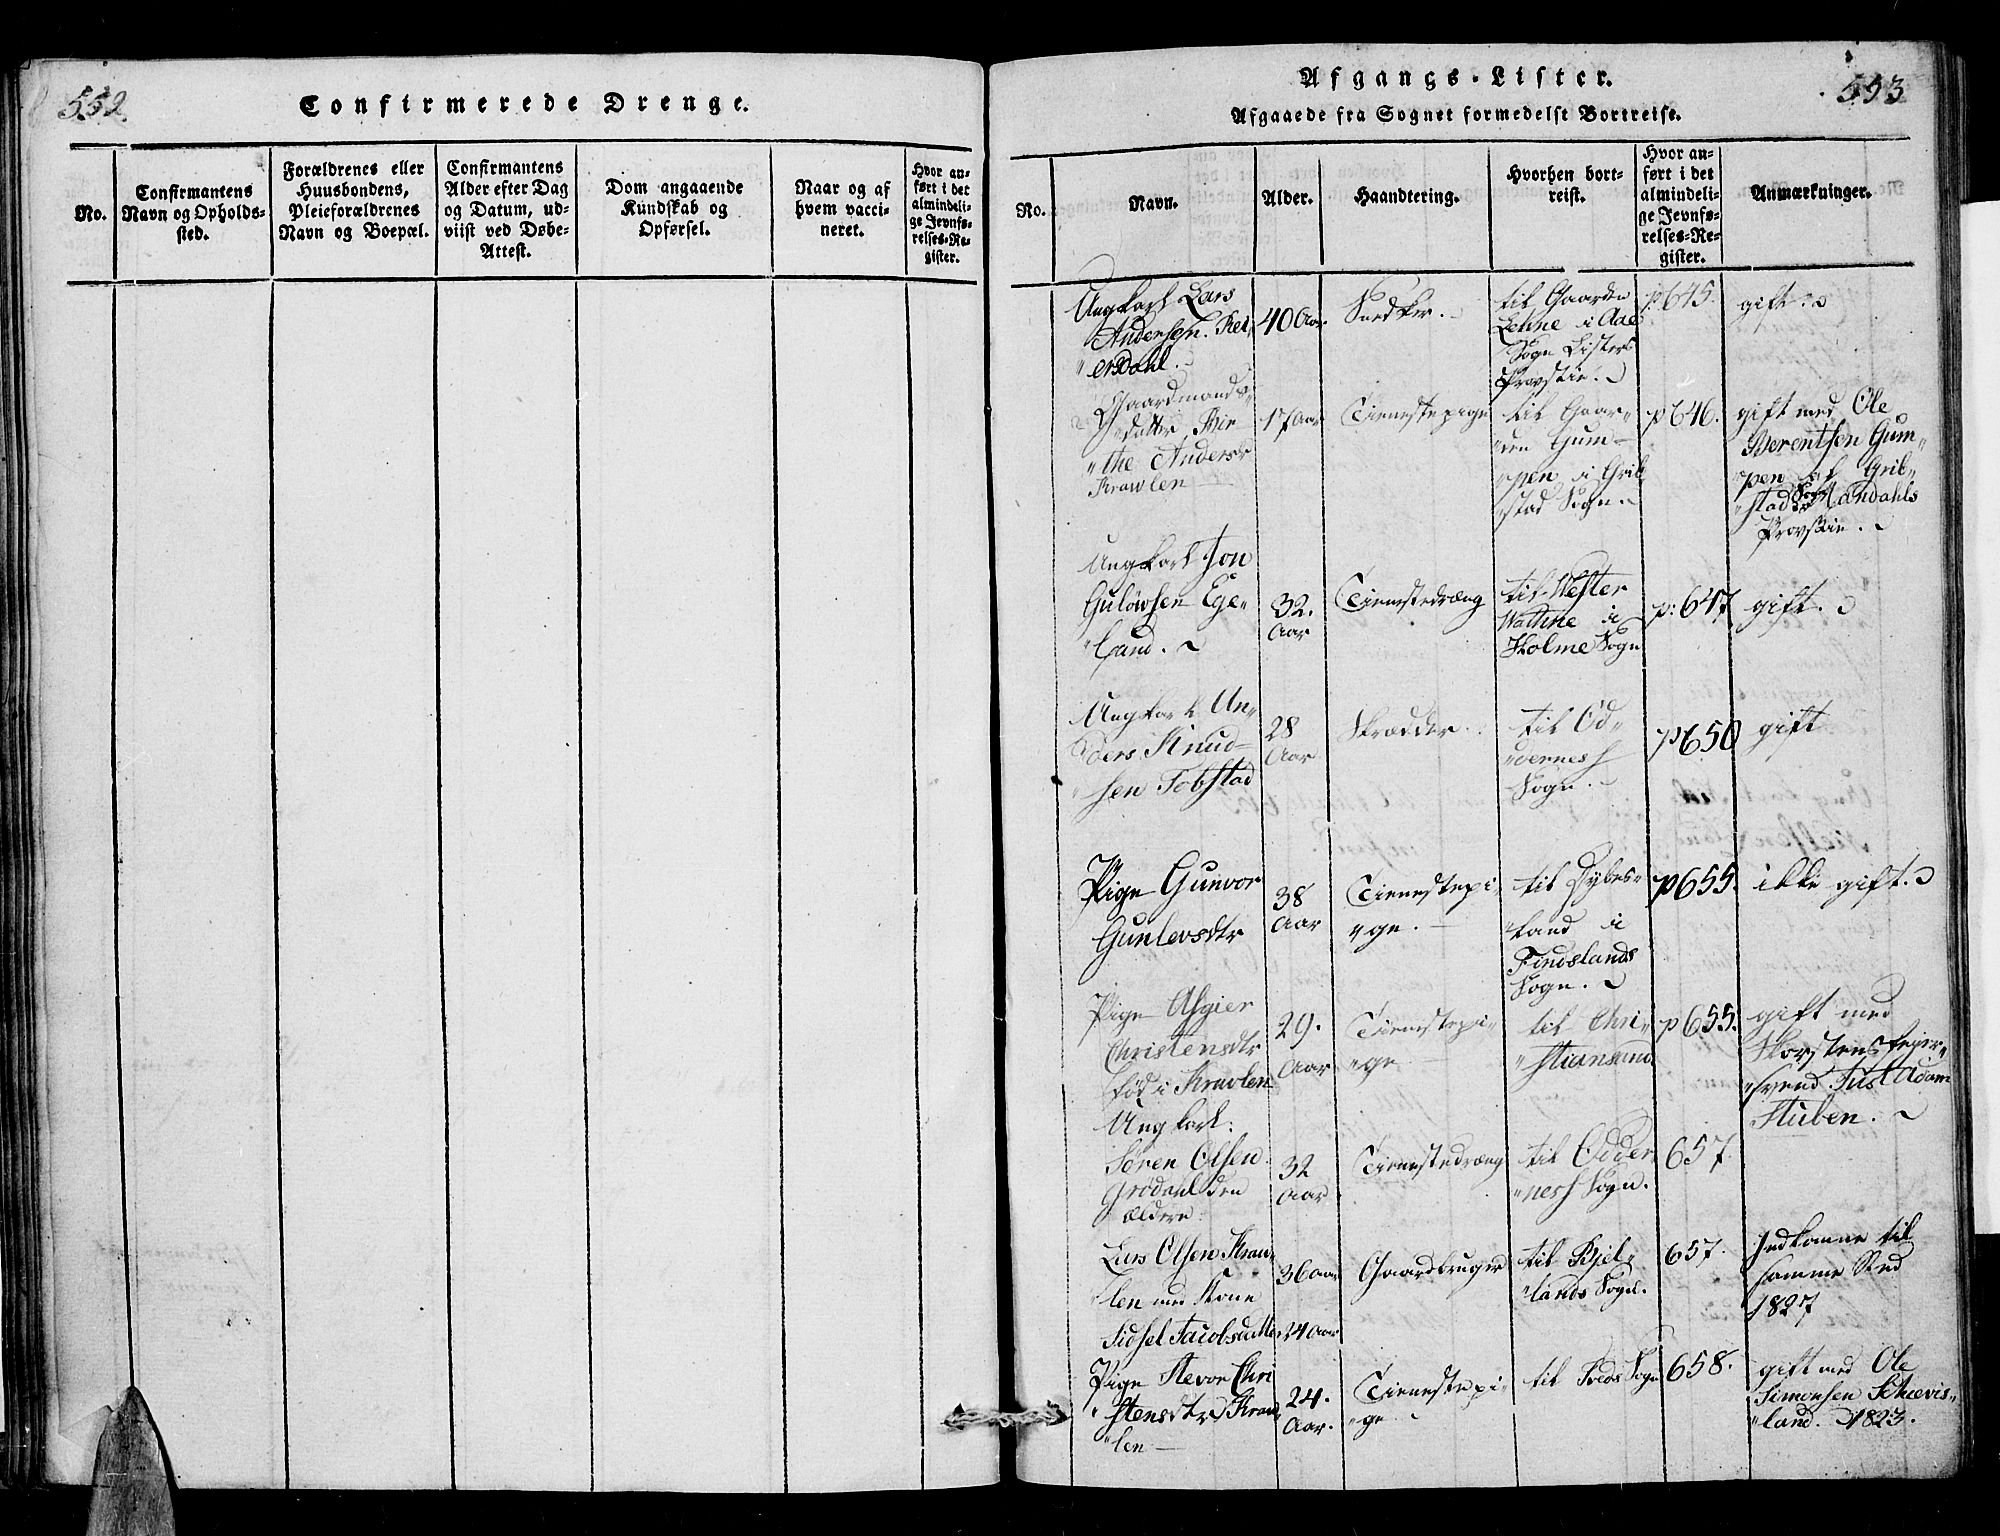 552.
Confirmerede Drenge.
No.
Confirmantens
Navn og Opholds-
sted.
Forældrenes eller
Huusbondens,
Pleieforældrenes
Navn og Boepæl.
Confirmantens
Alder efter Dag
og Datum, ud-
viist ved Døbe-
Attest.
Dom angaaende
Kundskab og
Opførsel.
Naar og af
hvem vacci-
neret.
Hvor an-
ført i det
almindeli-
ge Jevnfø-
relses-Re-
gister.
Afgangs-Lister.
553
Afgaaede fra Sognet formedelst Bortreise.
No.
Navn.
Alder.
Haandtering.
Hvorhen bort-
reist.
Hvor an-
ført i det
almindeli-
ge Jevnfø-
relses-Re-
gister.
Anmærkninger.
Ungkarl Lars
Andersen. Rei-
"ersdahl.
40 Aar
Snedker.
til Gaarden
Lehne i Aae
Sogn Listers
Provstie.
p 645.
gift.
Gaardmands-
"datter Bir
"the Andersdr
Krawlen
17 Aar
Tienestepige
til Gaar-
"den Gum-
"pen i Grib
"stad Sogn.
p 646.
gift med Ole
Berentsen Gum-
"pen af Grib-
"stad Sogn Mandahls
Provstie.
Ungkarl Jon
Gulówsen Ege-
"land.
32.
Aar
Tienestedræng
til Wester
Wathne i
Holme Sogn
p: 647
gift.
Ungkarl An-
"ders Knud-
"sen Tobstad
28
Aar
Skrædder.
til Od-
"dernes
Sogn.
p 650
gift
Pige Gunvor
Gunlevsdtr
38
Aar
Tienestepi-
"ge.
til Dybes-
"land i
Findslands
Sogn.
p 655.
ikke gift.
Pige Asgier
Christensdtr
fød i Kravlen
29.
Aar
Tienestepi-
"ge
til Chri-
"stiansand
p 655.
gift med
Skorstensfeier-
"svend Just Adam
Stuben.
Ungkarl:
Søren Olsen
Grødahl den
ældere
32
Aar
Tienestedræng
til Odder
"ness Sogn.
657.
Lars Olsen Krav-
"len med Kone
Sidsel Jacobsdatter
36 aar
24 Aar
Gaardbruger
til Bjel-
"lands Sogn.
657.
Indkomne til
samme Sted
1827
Pige Stevor Chri
"stensdtr Krav
"len
24.
Aar.
Tienestepi-
"ge
til Sogn
658.
gift med Ole
Simonsen Schievis-
"land. 1823.